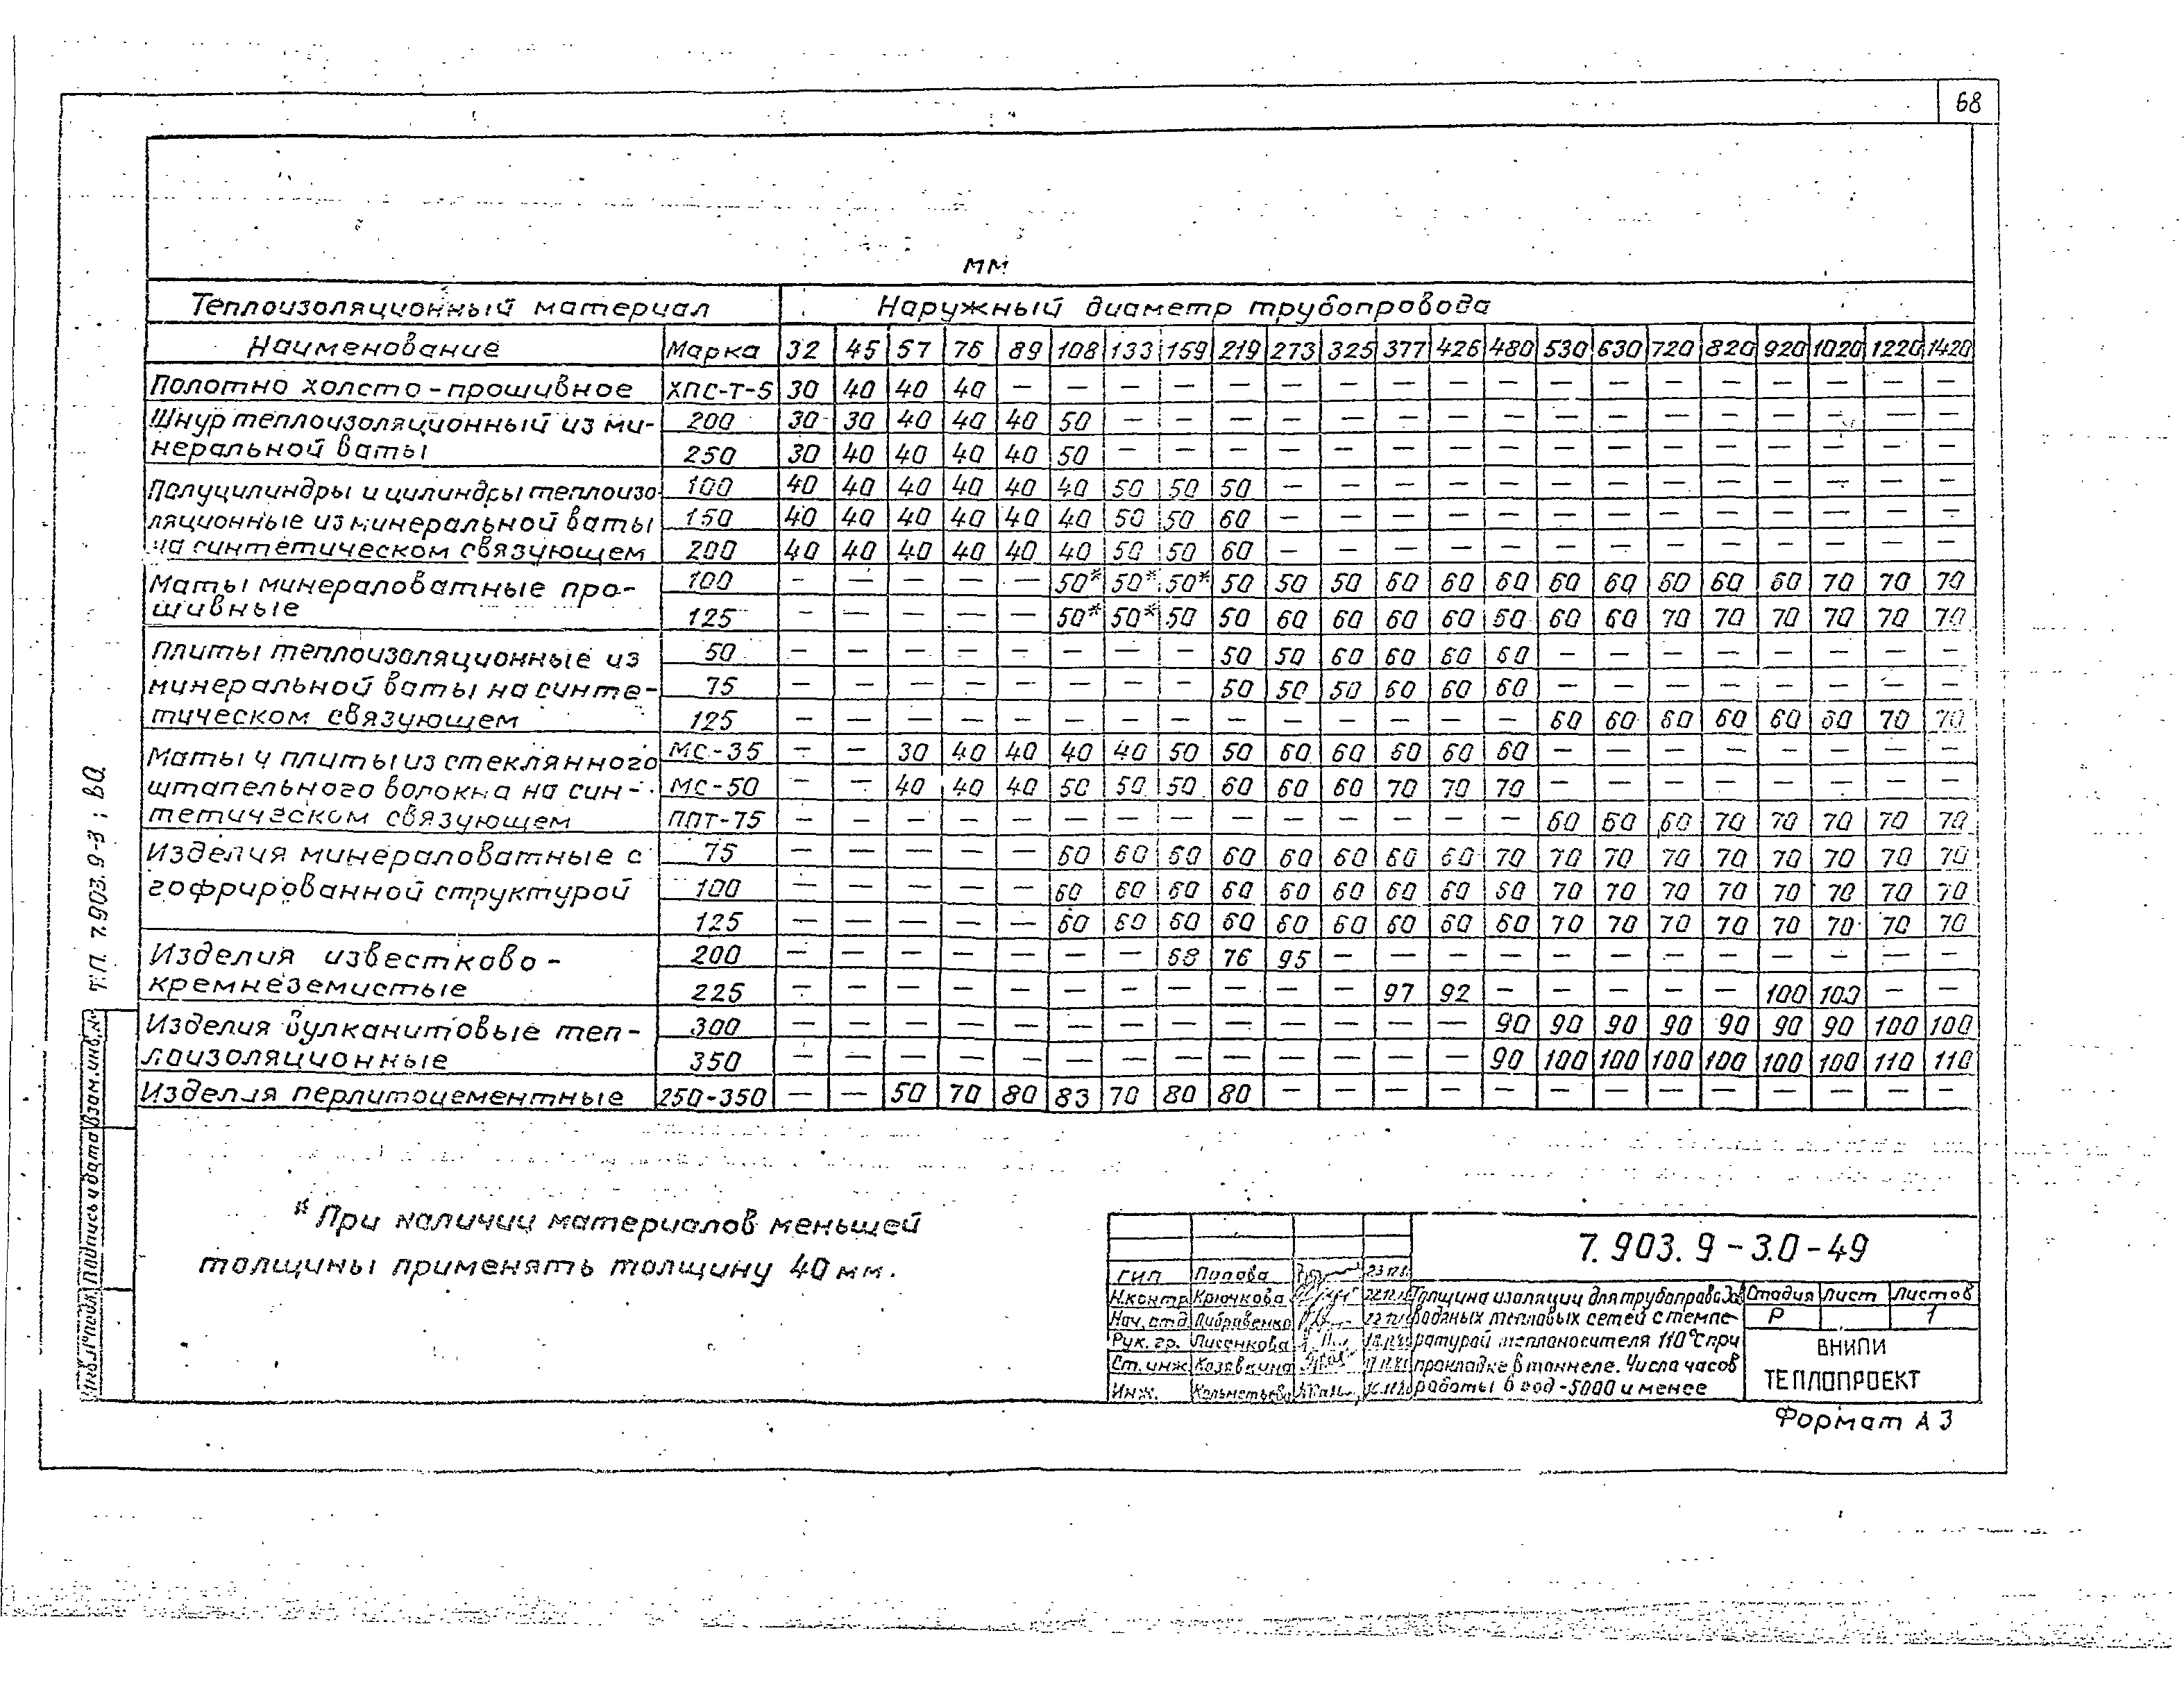 68
мм
Теплоизоляционный материал Наружный диаметр трубопровода
Наименование Марка 32 45 57 76 89 108 133 159 219 273 325 377 426 480 530 630 720 820 920 1020 1220 1420
Полотно холсто-прошивное ХПС-Т-5 30 40 40 40 — — — — — — — — — — — — — — — — — —
Шнур теплоизоляционный из ми- 200 30 30 40 40 40 50 — — — — — — — — — — — — — — — —
неральной ваты 250 30 40 40 40 40 50 — — — — — — — — — — — — — — — —
Полуцилиндры и цилиндры теплоизо 100 40 40 40 40 40 40 50 50 50 — — — — — — — — — — — — —
ляционные из минеральной ваты 150 40 40 40 40 40 40 50 50 60 — — — — — — — — — — — — —
на синтетическом связующем 200 40 40 40 40 40 40 50 50 60 — — — — — — — — — — — — —
Маты минераловатные про- 100 — — — — — 50* 50* 50* 50 50 50 60 60 60 60 60 60 60 60 70 70 70
шивные 125 — — — — — 50* 50* 50 50 60 60 60 60 60 60 60 70 70 70 70 70 70
Плиты теплоизоляционные из 50 — — — — — — — — 50 50 60 60 60 60 — — — — — — — —
минеральной ваты на синте- 75 — — — — — — — — 50 50 50 60 60 60 — — — — — — — —
тическом связующем 125 — — — — — — — — — — — — — — 60 60 60 60 60 60 70 70
Маты и плиты из стеклянного МС-35 — — 30 40 40 40 40 50 50 60 60 60 60 60 — — — — — — — —
штапельного волокна на син- МС-50 — — 40 40 40 50 50 50 60 60 60 70 70 70 — — — — — — — —
тетическом связующем ППТ-75 — — — — — — — — — — — — — — 60 60 60 70 70 70 70 70
Изделия минераловатные с 75 — — — — — 60 60 60 60 60 60 60 60 70 70 70 70 70 70 70 70 70
гофрированной структурой 100 — — — — — 60 60 60 60 60 60 60 60 60 70 70 70 70 70 70 70 70
125 — — — — — 60 60 60 60 60 60 60 60 60 70 70 70 70 70 70 70 70
Изделия известково- 200 — — — — — — — 68 76 95 — — — — — — — — — — — —
кремнеземистые 225 — — — — — — — — — — — 97 92 — — — — — 100 100 — —
Изделия вулканитовые теп- 300 — — — — — — — — — — — — — 90 90 90 90 90 90 90 100 100
лоизоляционные 350 — — — — — — — — — — — — — 90 100 100 100 100 100 100 110 110
Изделия перлитоцементные 250-350 — — 50 70 80 83 70 80 80 — — — — — — — — — — — — —
* При наличии материалов меньшей
толщины применять толщину 40 мм.
Т.П. 7.903.9-3; В0
Инв.№ подл. Подпись и дата Взам.инв.№
7.903.9-3.0-49
ГИП Попова
Н.контр Крючкова
Нач.отд
Рук.гр. Лисенкова
Ст.инж Козявкина
Инж.
Толщина изоляции для трубопроводов
водяных тепловых сетей с темпе-
ратурой теплоносителя 110°С при
прокладке в тоннеле. Число часов
работы в год -5000 и менее
Стадия Лист Листов
Р 1
ВНИПИ
ТЕПЛОПРОЕКТ
Формат А3